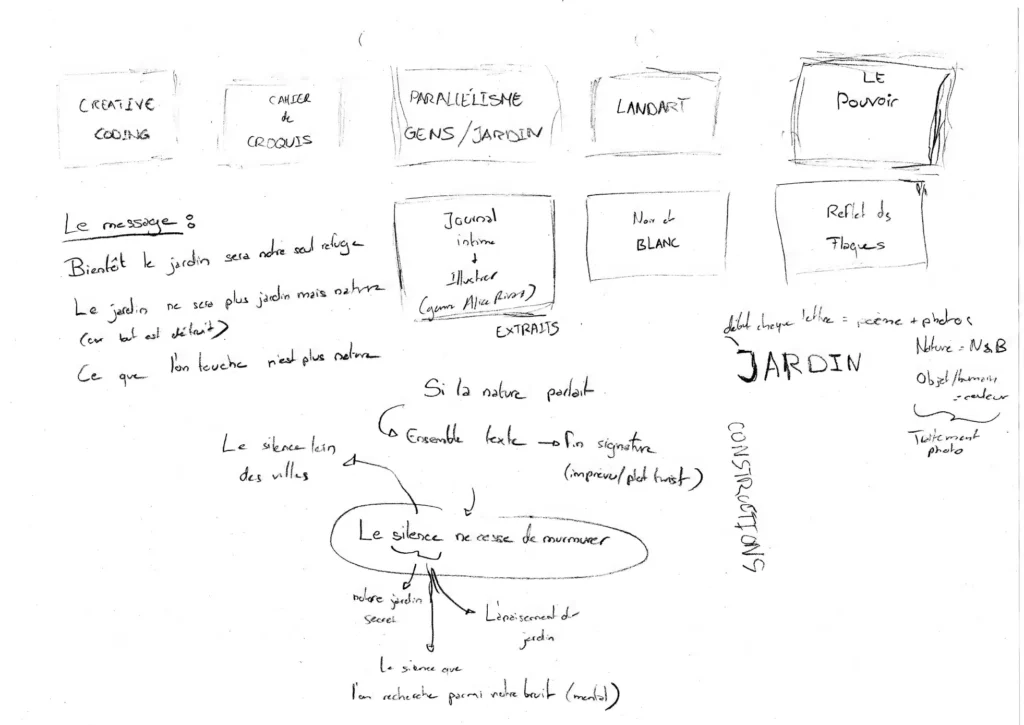 CREATIVE
CODING
CAHIER
de
CROQUIS
PARALLÉLISME
GENS/JARDIN
LANDART
LE
Pouvoir
Le message :
Bientôt le jardin sera notre seul refuge
Le jardin ne sera plus jardin mais nature
(car tout est détruit)
Ce que l'on touche n'est plus nature
Journal
intime
Illustrer
(genre Alice)
EXTRAITS
Noir et
BLANC
Reflet ds
Flaques
début chaque lettre = poème + photos
JARDIN
Nature = N&B
Objet/humain
= couleur
Traitement
photo
CONSTRUCTIONS
Si la nature parlait
Ensemble texte → fin signature
(imprévu/plot twist)
Le silence loin
des villes
Le silence ne cesse de murmurer
notre jardin
secret
L'apaisement du
jardin
Le silence que
l'on recherche parmi notre bruit (mental)